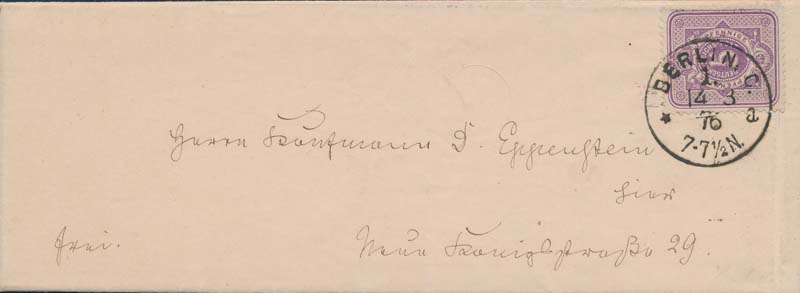 PFENNIGE
BERLIN. C.
1.
14 3
76
a
7-7½N.
Herrn Kaufmann D. Eppenstein
hier
frei.
Neue Königsstraße 29.